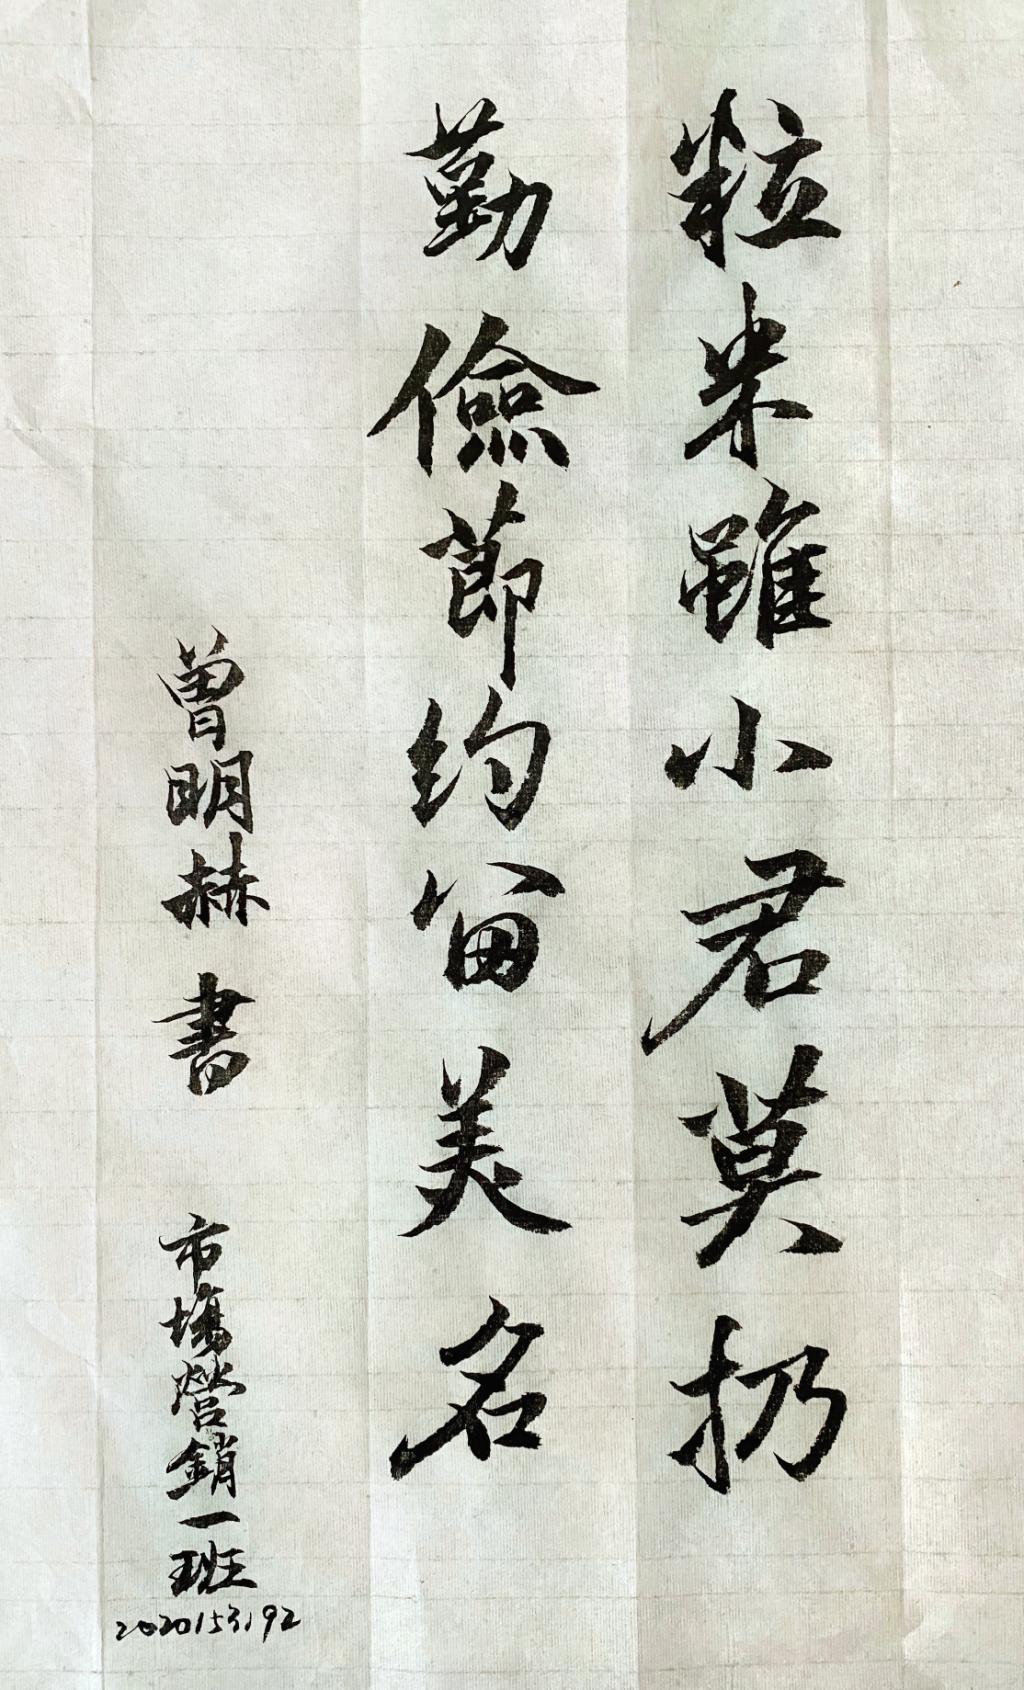 粒米雖小君莫扔
勤儉節約留美名
曾明赫 書 市場營銷一班
2020153192